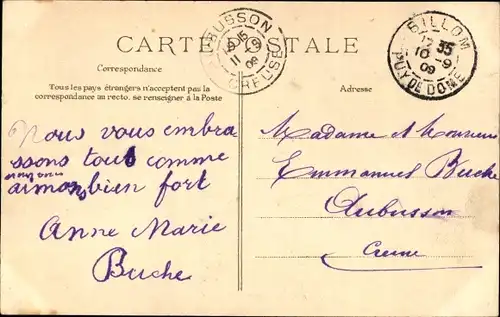 CARTE POSTALE
AUBUSSON
11 -9
09
CREUSE
BILLOM
10 -9
09
PUY DE DOME
Correspondance
Tous les pays étrangers n'acceptent pas la
correspondance au recto, se renseigner à la Poste
Adresse
Nous vous embra
ssons tout comme
nous vous
aimons bien fort
Anne Marie
Buche
Madame et Monsieur
Emmanuel Buche
Aubusson
Creuse